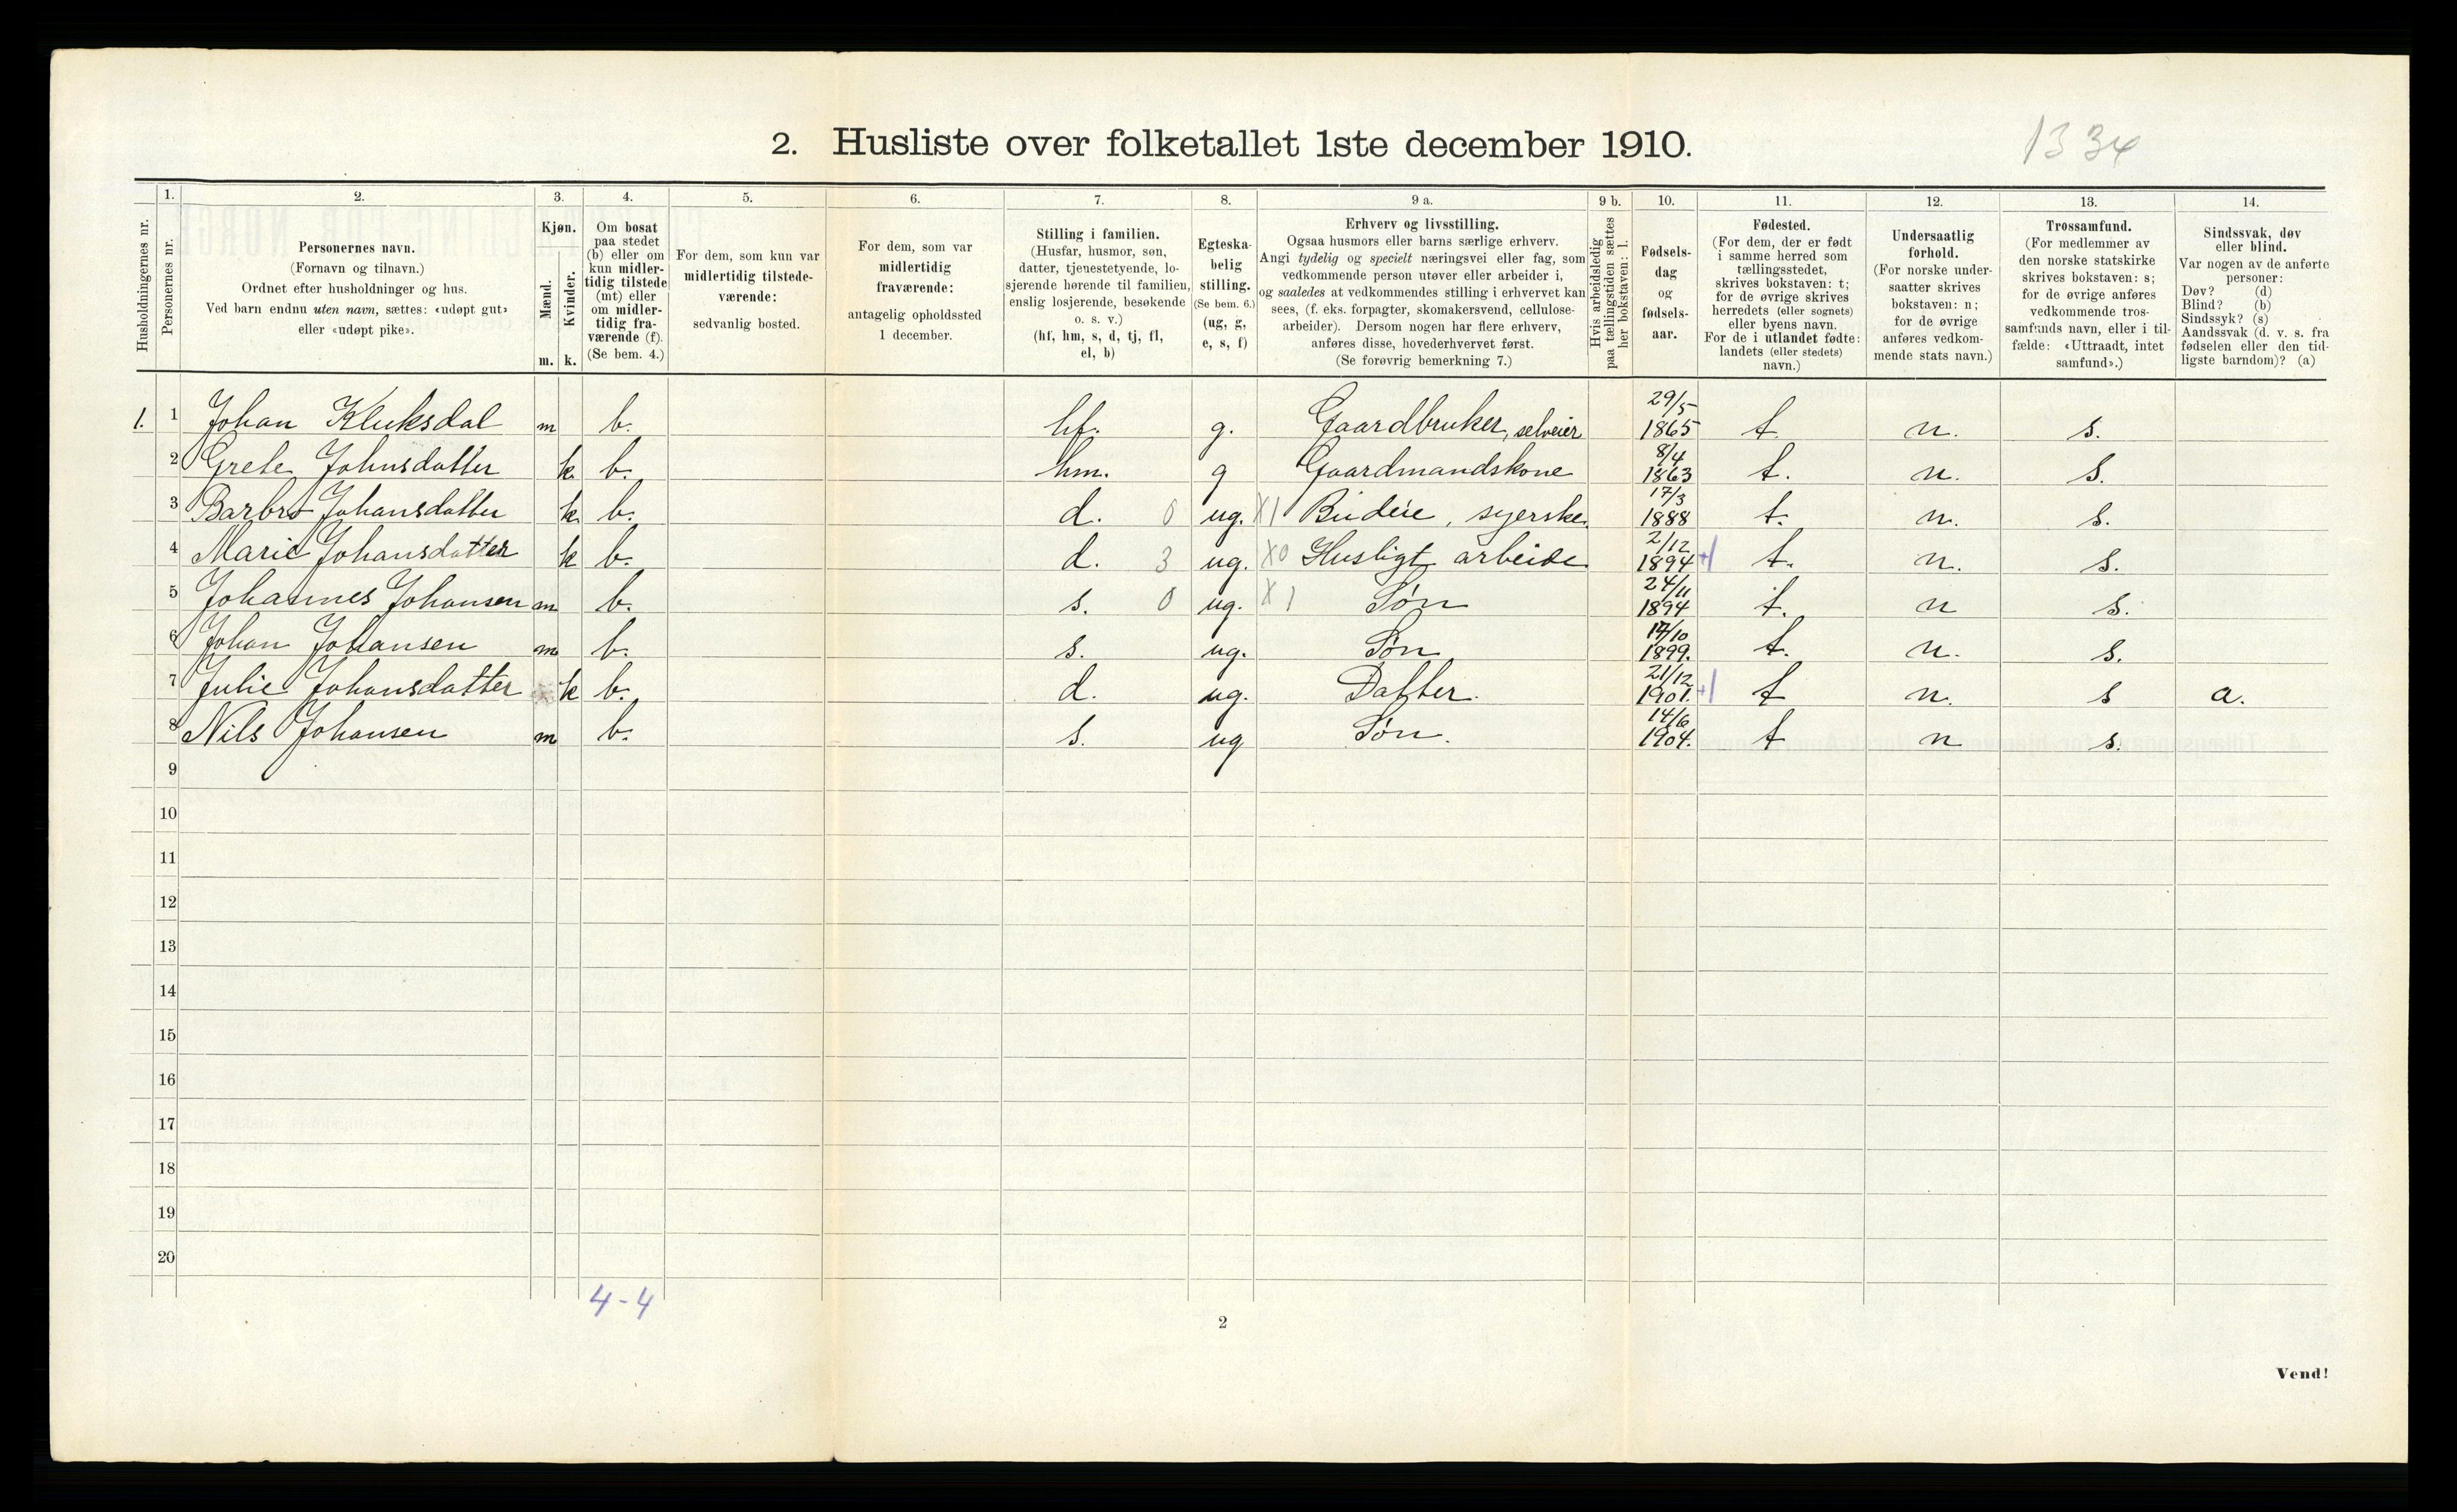 2. Husliste over folketallet 1ste december 1910.
1334
Husholdningernes nr.
1.
Personernes nr.
2.
Personernes navn.
(Fornavn og tilnavn.)
Ordnet efter husholdninger og hus.
Ved barn endnu uten navn, sættes: «udøpt gut»
eller «udøpt pike».
3.
Kjøn.
Mænd.
Kvinder.
m. k.
4.
Om bosat
paa stedet
(b) eller om
kun midler-
tidig tilstede
(mt) eller
om midler-
tidig fra-
værende (f).
(Se bem. 4.)
5.
For dem, som kun var
midlertidig tilstede-
værende:
sedvanlig bosted.
6.
For dem, som var
midlertidig
fraværende:
antagelig opholdssted
1 december.
7.
Stilling i familien.
(Husfar, husmor, søn,
datter, tjenestetyende, lo-
sjerende hørende til familien,
enslig losjerende, besøkende
o. s. v.)
(hf, hm, s, d, tj, fl,
el, b)
8.
Egteska-
belig
stilling.
(Se bem. 6.)
(ug, g,
e, s, f)
9 a.
Erhverv og livsstilling.
Ogsaa husmors eller barns særlige erhverv.
Angi tydelig og specielt næringsvei eller fag, som
vedkommende person utøver eller arbeider i,
og saaledes at vedkommendes stilling i erhvervet kan
sees, (f. eks. forpagter, skomakersvend, cellulose-
arbeider). Dersom nogen har flere erhverv,
anføres disse, hovederhvervet først.
(Se forøvrig bemerkning 7.)
9 b.
Hvis arbeidsledig
paa tællingstiden sættes
her bokstaven: l.
10.
Fødsels-
dag
og
fødsels-
aar.
11.
Fødested.
(For dem, der er født
i samme herred som
tællingsstedet,
skrives bokstaven: t;
for de øvrige skrives
herredets (eller sognets)
eller byens navn.
For de i utlandet fødte:
landets (eller stedets)
navn.)
12.
Undersaatlig
forhold.
(For norske under-
saatter skrives
bokstaven: n;
for de øvrige
anføres vedkom-
mende stats navn.)
13.
Trossamfund.
(For medlemmer av
den norske statskirke
skrives bokstaven: s;
for de øvrige anføres
vedkommende tros-
samfunds navn, eller i til-
fælde: «Uttraadt, intet
samfund».)
14.
Sindssvak, døv
eller blind.
Var nogen av de anførte
personer:
Døv? (d)
Blind? (b)
Sindssyk? (s)
Aandssvak (d. v. s. fra
fødselen eller den tid-
ligste barndom)? (a)
1. 1 Johan Kluksdal m b. hf. g. Gaardbruker, selveier 29/5 1865 t. n. s.
2 Grete Johnsdatter k. b. hm. g Gaardmandskone 8/4 1863 t. n. s.
3 Barbro Johansdatter k. b. d. 0 ug. X1 Budeie, syerske. 17/3 1888 t. n. s.
4 Marie Johansdatter k b. d. 3 ug. X0 Husligt arbeide 2/12 1894 +1 t. n. s.
5 Johannes Johansen m b. s. 0 ug. X1 Søn 24/11 1894 t. n s.
6 Johan Johansen m b. s. ug. Søn 17/10 1899. t. n. s.
7 Julie Johansdatter k b. d. ug. Datter. 21/12 1901. +1 t n. s a.
8 Nils Johansen m b. s. ug Søn. 14/6 1904. t n s.
9
10
11
12
13
14
15
16
17
18
19
20
4-4
2
Vend!